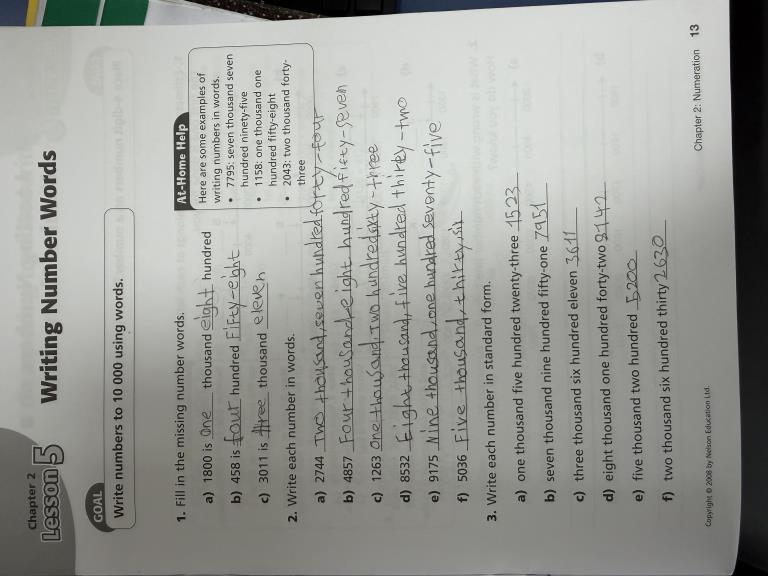 Chapter 2
Lesson 5
Writing Number Words
GOAL
Write numbers to 10 000 using words.
1. Fill in the missing number words.
a) 1800 is one thousand eight hundred
b) 458 is four hundred Fifty-eight
c) 3011 is three thousand eleven
At-Home Help
Here are some examples of
writing numbers in words.
• 7795: seven thousand seven
hundred ninety-five
• 1158: one thousand one
hundred fifty-eight
• 2043: two thousand forty-
three
2. Write each number in words.
a) 2744 Two thousand, seven hundred forty-four
b) 4857 Four thousand eight hundred fifty-seven
c) 1263 one thousand, Two hundred sixty-three
d) 8532 Eight thousand, five hundred thirty-two
e) 9175 Nine thousand, one hundred seventy-five
f) 5036 Five thousand, thirty six
3. Write each number in standard form.
a) one thousand five hundred twenty-three 1523
b) seven thousand nine hundred fifty-one 7951
c) three thousand six hundred eleven 3611
d) eight thousand one hundred forty-two 8142
e) five thousand two hundred 5200
f) two thousand six hundred thirty 2630
Copyright © 2008 by Nelson Education Ltd.
Chapter 2: Numeration 13